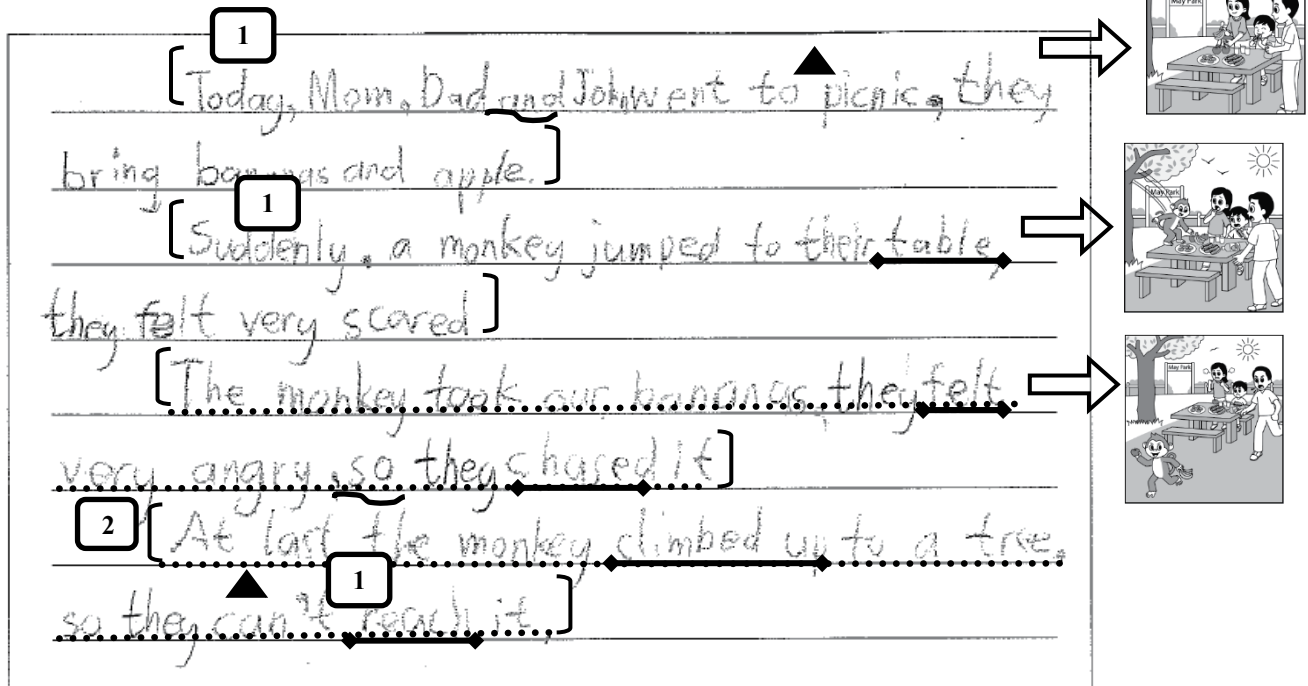 May Park
1
Today, Mom, Dad and John went to picnic, they
bring bananas and apple.
1
Suddenly, a monkey jumped to their table,
May Park
they felt very scared
The monkey took our bananas, they felt
May Park
very angry, so they chased it
2
At last the monkey climbed up to a tree,
1
so they can't reach it,